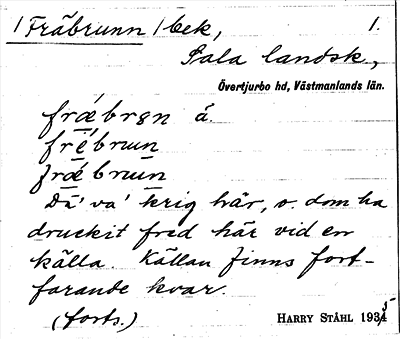 /Fräbrunn/bek, 1.
Sala landsk.,
Övertjurbo hd, Västmanlands län.
frǽbrɘn å.
frébrun
frǽbrun
Dä' va' krig här, o. dom ha
druckit fred här vid en
källa. Källan finns fort-
farande kvar.
(forts.)
HARRY STÅHL 1935